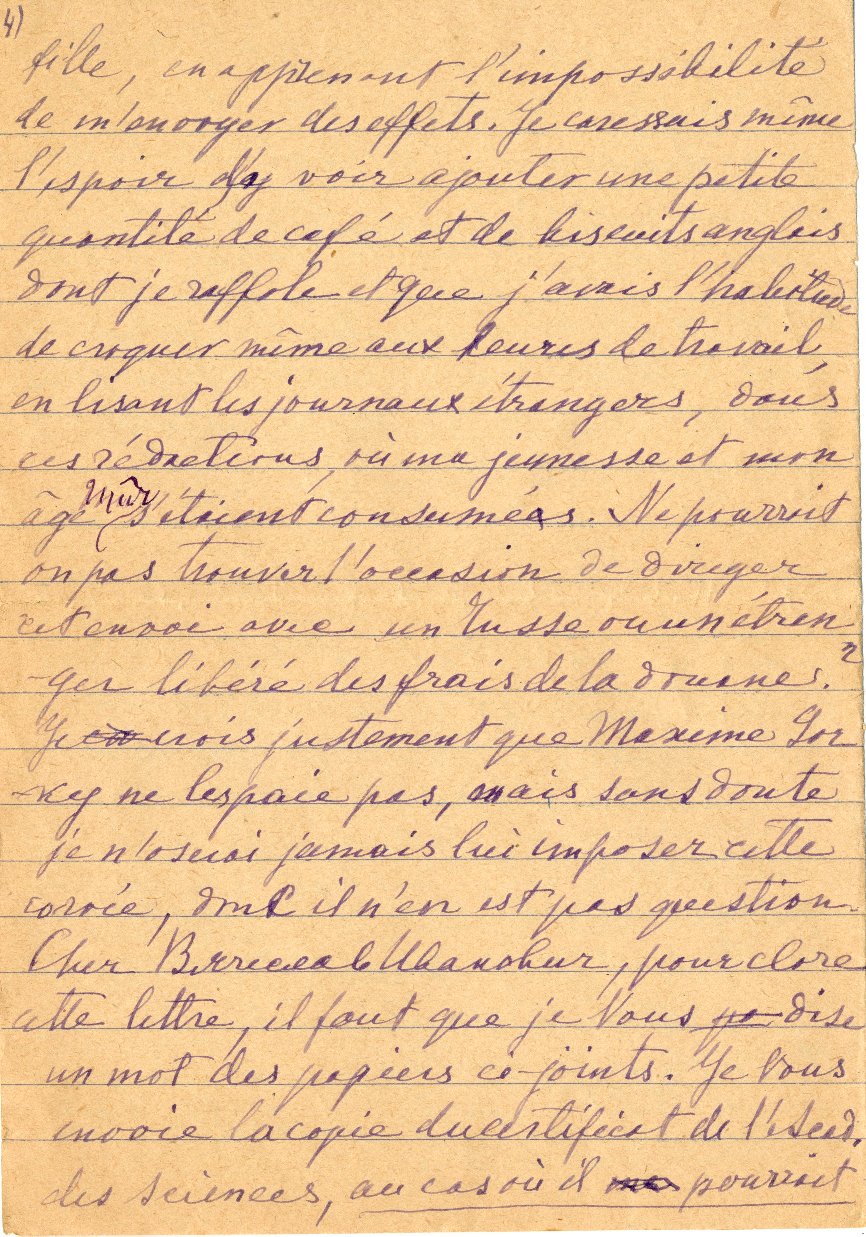 4)
fille, en apprenant l'impossibilité
de m'envoyer des effets. Je caressais même
l'espoir d'y voir ajouter une petite
quantité de café et de biscuits anglais
dont je raffole et que j'avais l'habitude
de croquer même aux heures de travail,
en lisant les journaux étrangers, dans
ces rédactions, où ma jeunesse et mon
âge mûr s'étaient consumés. Ne pourrait
on pas trouver l'occasion de diriger
cet envoi avec un Russe ou un étran
-ger libéré des frais de la douane?
Je crois justement que Maxime Gor
-ky ne les paie pas, mais sans doute
je n'oserai jamais lui imposer cette
corvée, donc il n'en est pas question.
Cher Вячеслав Иванович, pour clore
cette lettre, il faut que je Vous dise
un mot des papiers ci-joints. Je Vous
envoie la copie du certificat de l'Acad.
des sciences, au cas où il pourrait